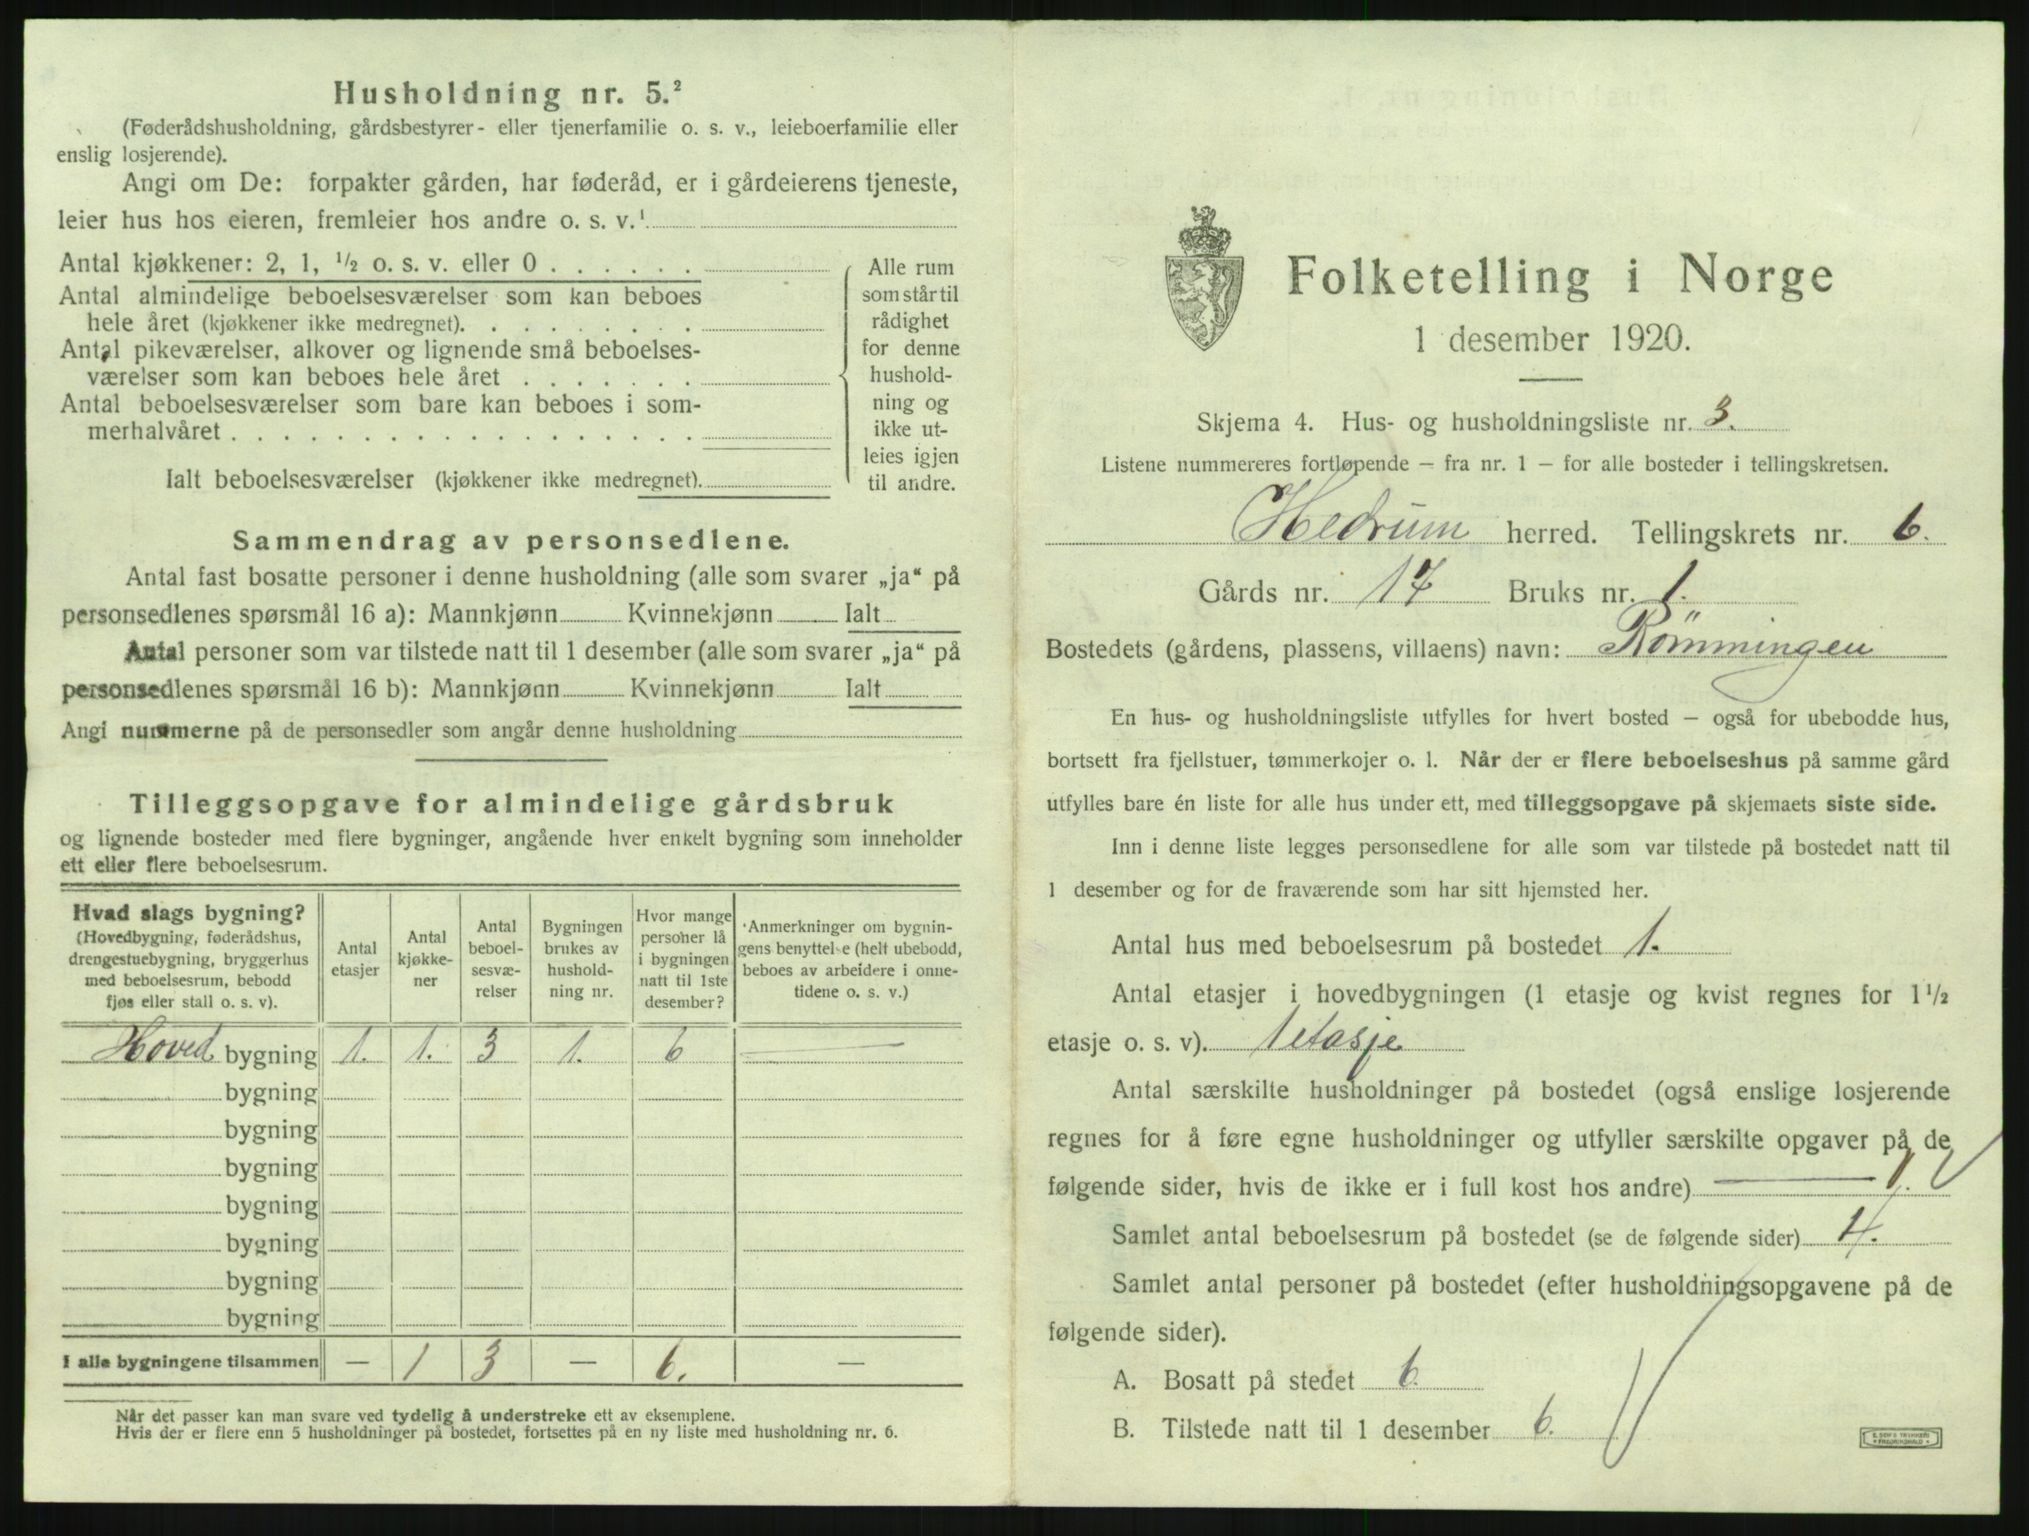 Husholdning nr. 5.²
(Føderådshusholdning, gårdsbestyrer- eller tjenerfamilie o. s. v., leieboerfamilie eller
enslig losjerende).
Angi om De: forpakter gården, har føderåd, er i gårdeierens tjeneste,
leier hus hos eieren, fremleier hos andre o. s. v.¹
Antal kjøkkener: 2, 1, ½ o. s. v. eller 0 . . . . . .
Antal almindelige beboelsesværelser som kan beboes
hele året (kjøkkener ikke medregnet). . . . . . . . .
Antal pikeværelser, alkover og lignende små beboelses-
værelser som kan beboes hele året . . . . . . .
Antal beboelsesværelser som bare kan beboes i som-
merhalvåret . . . . . . . . . . . . . . . . . .
Ialt beboelsesværelser (kjøkkener ikke medregnet).
Alle rum
som står til
rådighet
for denne
hushold-
ning og
ikke ut-
leies igjen
til andre.
Sammendrag av personsedlene.
Antal fast bosatte personer i denne husholdning (alle som svarer „ja“ på
personsedlenes spørsmål 16 a): Mannkjønn Kvinnekjønn Ialt
Antal personer som var tilstede natt til 1 desember (alle som svarer „ja“ på
personsedlenes spørsmål 16 b): Mannkjønn Kvinnekjønn Ialt
Angi nummerne på de personsedler som angår denne husholdning
Tilleggsopgave for almindelige gårdsbruk
og lignende bosteder med flere bygninger, angående hver enkelt bygning som inneholder
ett eller flere beboelsesrum.
Hvad slags bygning?
(Hovedbygning, føderådshus,
drengestuebygning, bryggerhus
med beboelsesrum, bebodd
fjøs eller stall o. s. v).
Antal
etasjer
Antal
kjøkke-
ner
Antal
beboel-
sesvæ-
relser
Bygningen
brukes av
hushold-
ning nr.
Hvor mange
personer lå
i bygningen
natt til 1ste
desember?
Anmerkninger om bygnin-
gens benyttelse (helt ubebodd,
beboes av arbeidere i onne-
tidene o. s. v.)
Hoved bygning 1. 1. 3 1. 6 —
bygning
bygning
bygning
bygning
bygning
bygning
bygning
I alle bygningene tilsammen — 1 3 — 6. —
Når det passer kan man svare ved tydelig å understreke ett av eksemplene.
Hvis der er flere enn 5 husholdninger på bostedet, fortsettes på en ny liste med husholdning nr. 6.
Folketelling i Norge
1 desember 1920.
Skjema 4. Hus- og husholdningsliste nr. 3.
Listene nummereres fortløpende — fra nr. 1 — for alle bosteder i tellingskretsen.
Hedrum herred. Tellingskrets nr. 6.
Gårds nr. 17 Bruks nr. 1.
Bostedets (gårdens, plassens, villaens) navn: Römmingen
En hus- og husholdningsliste utfylles for hvert bosted — også for ubebodde hus,
bortsett fra fjellstuer, tømmerkojer o. l. Når der er flere beboelseshus på samme gård
utfylles bare én liste for alle hus under ett, med tilleggsopgave på skjemaets siste side.
Inn i denne liste legges personsedlene for alle som var tilstede på bostedet natt til
1 desember og for de fraværende som har sitt hjemsted her.
Antal hus med beboelsesrum på bostedet 1.
Antal etasjer i hovedbygningen (1 etasje og kvist regnes for 1½
etasje o. s. v). 1 etasje
Antal særskilte husholdninger på bostedet (også enslige losjerende
regnes for å føre egne husholdninger og utfyller særskilte opgaver på de
følgende sider, hvis de ikke er i full kost hos andre) — 1.
Samlet antal beboelsesrum på bostedet (se de følgende sider) 4.
Samlet antal personer på bostedet (efter husholdningsopgavene på de
følgende sider).
A. Bosatt på stedet 6.
B. Tilstede natt til 1 desember 6.